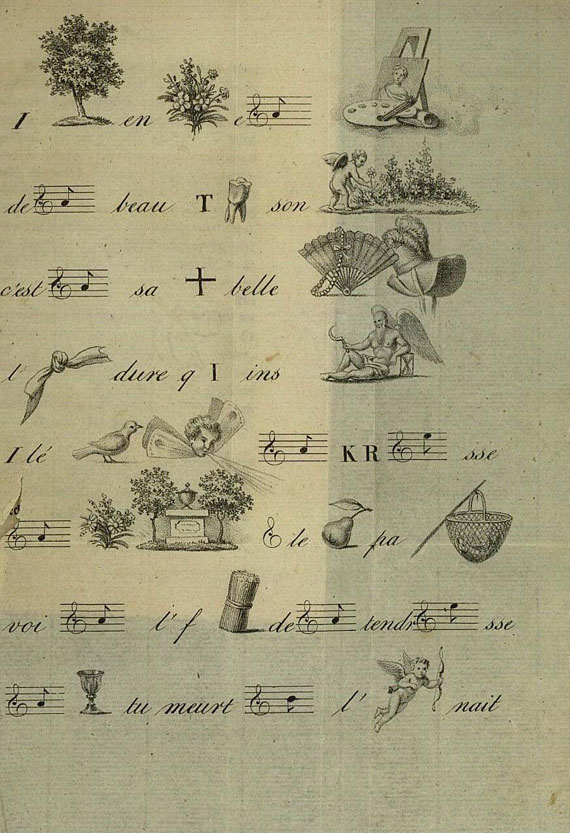 I en e
de beau T son
c'est sa + belle
l' dure q I ins
I lé K R sse
& le pa
voi l' f de tendr sse
tu meurt l' nait